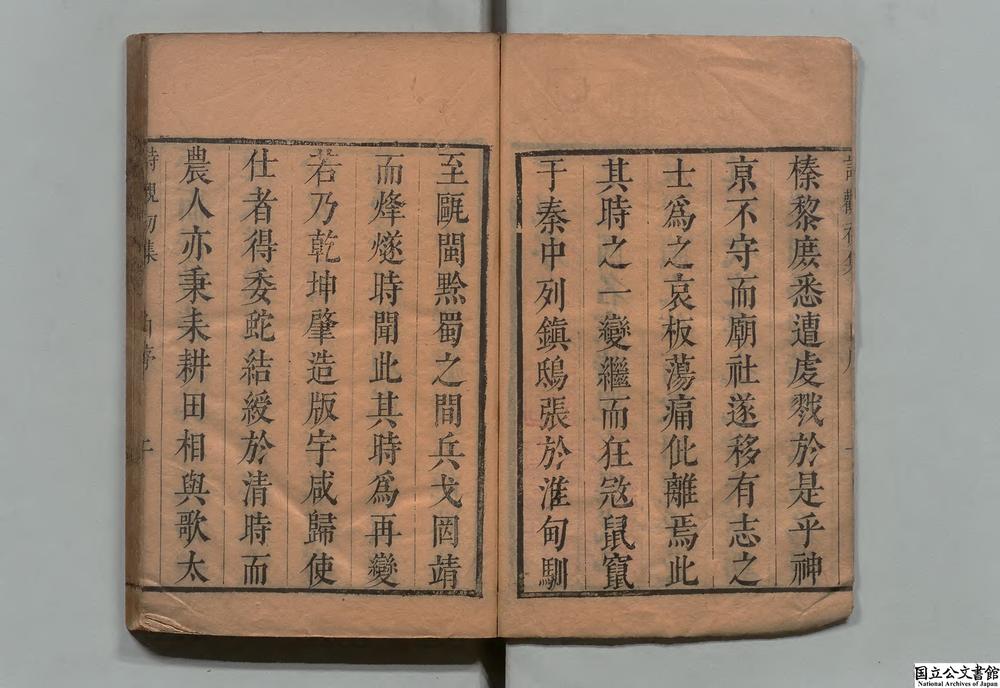 榛黎庶悉遭虔戮於是乎神
京不守而廟社遂移有志之
士爲之哀板蕩痛仳離焉此
其時之一變繼而狂寇鼠竄
于秦中列鎮鴟張於淮甸馴
至甌閩黔蜀之間兵戈罔靖
而烽燧時聞此其時爲再變
若乃乾坤肇造版宇咸歸使
仕者得委蛇結綬於清時而
農人亦秉耒耕田相與歌太
詩觀初集
国立公文書館
National Archives of Japan